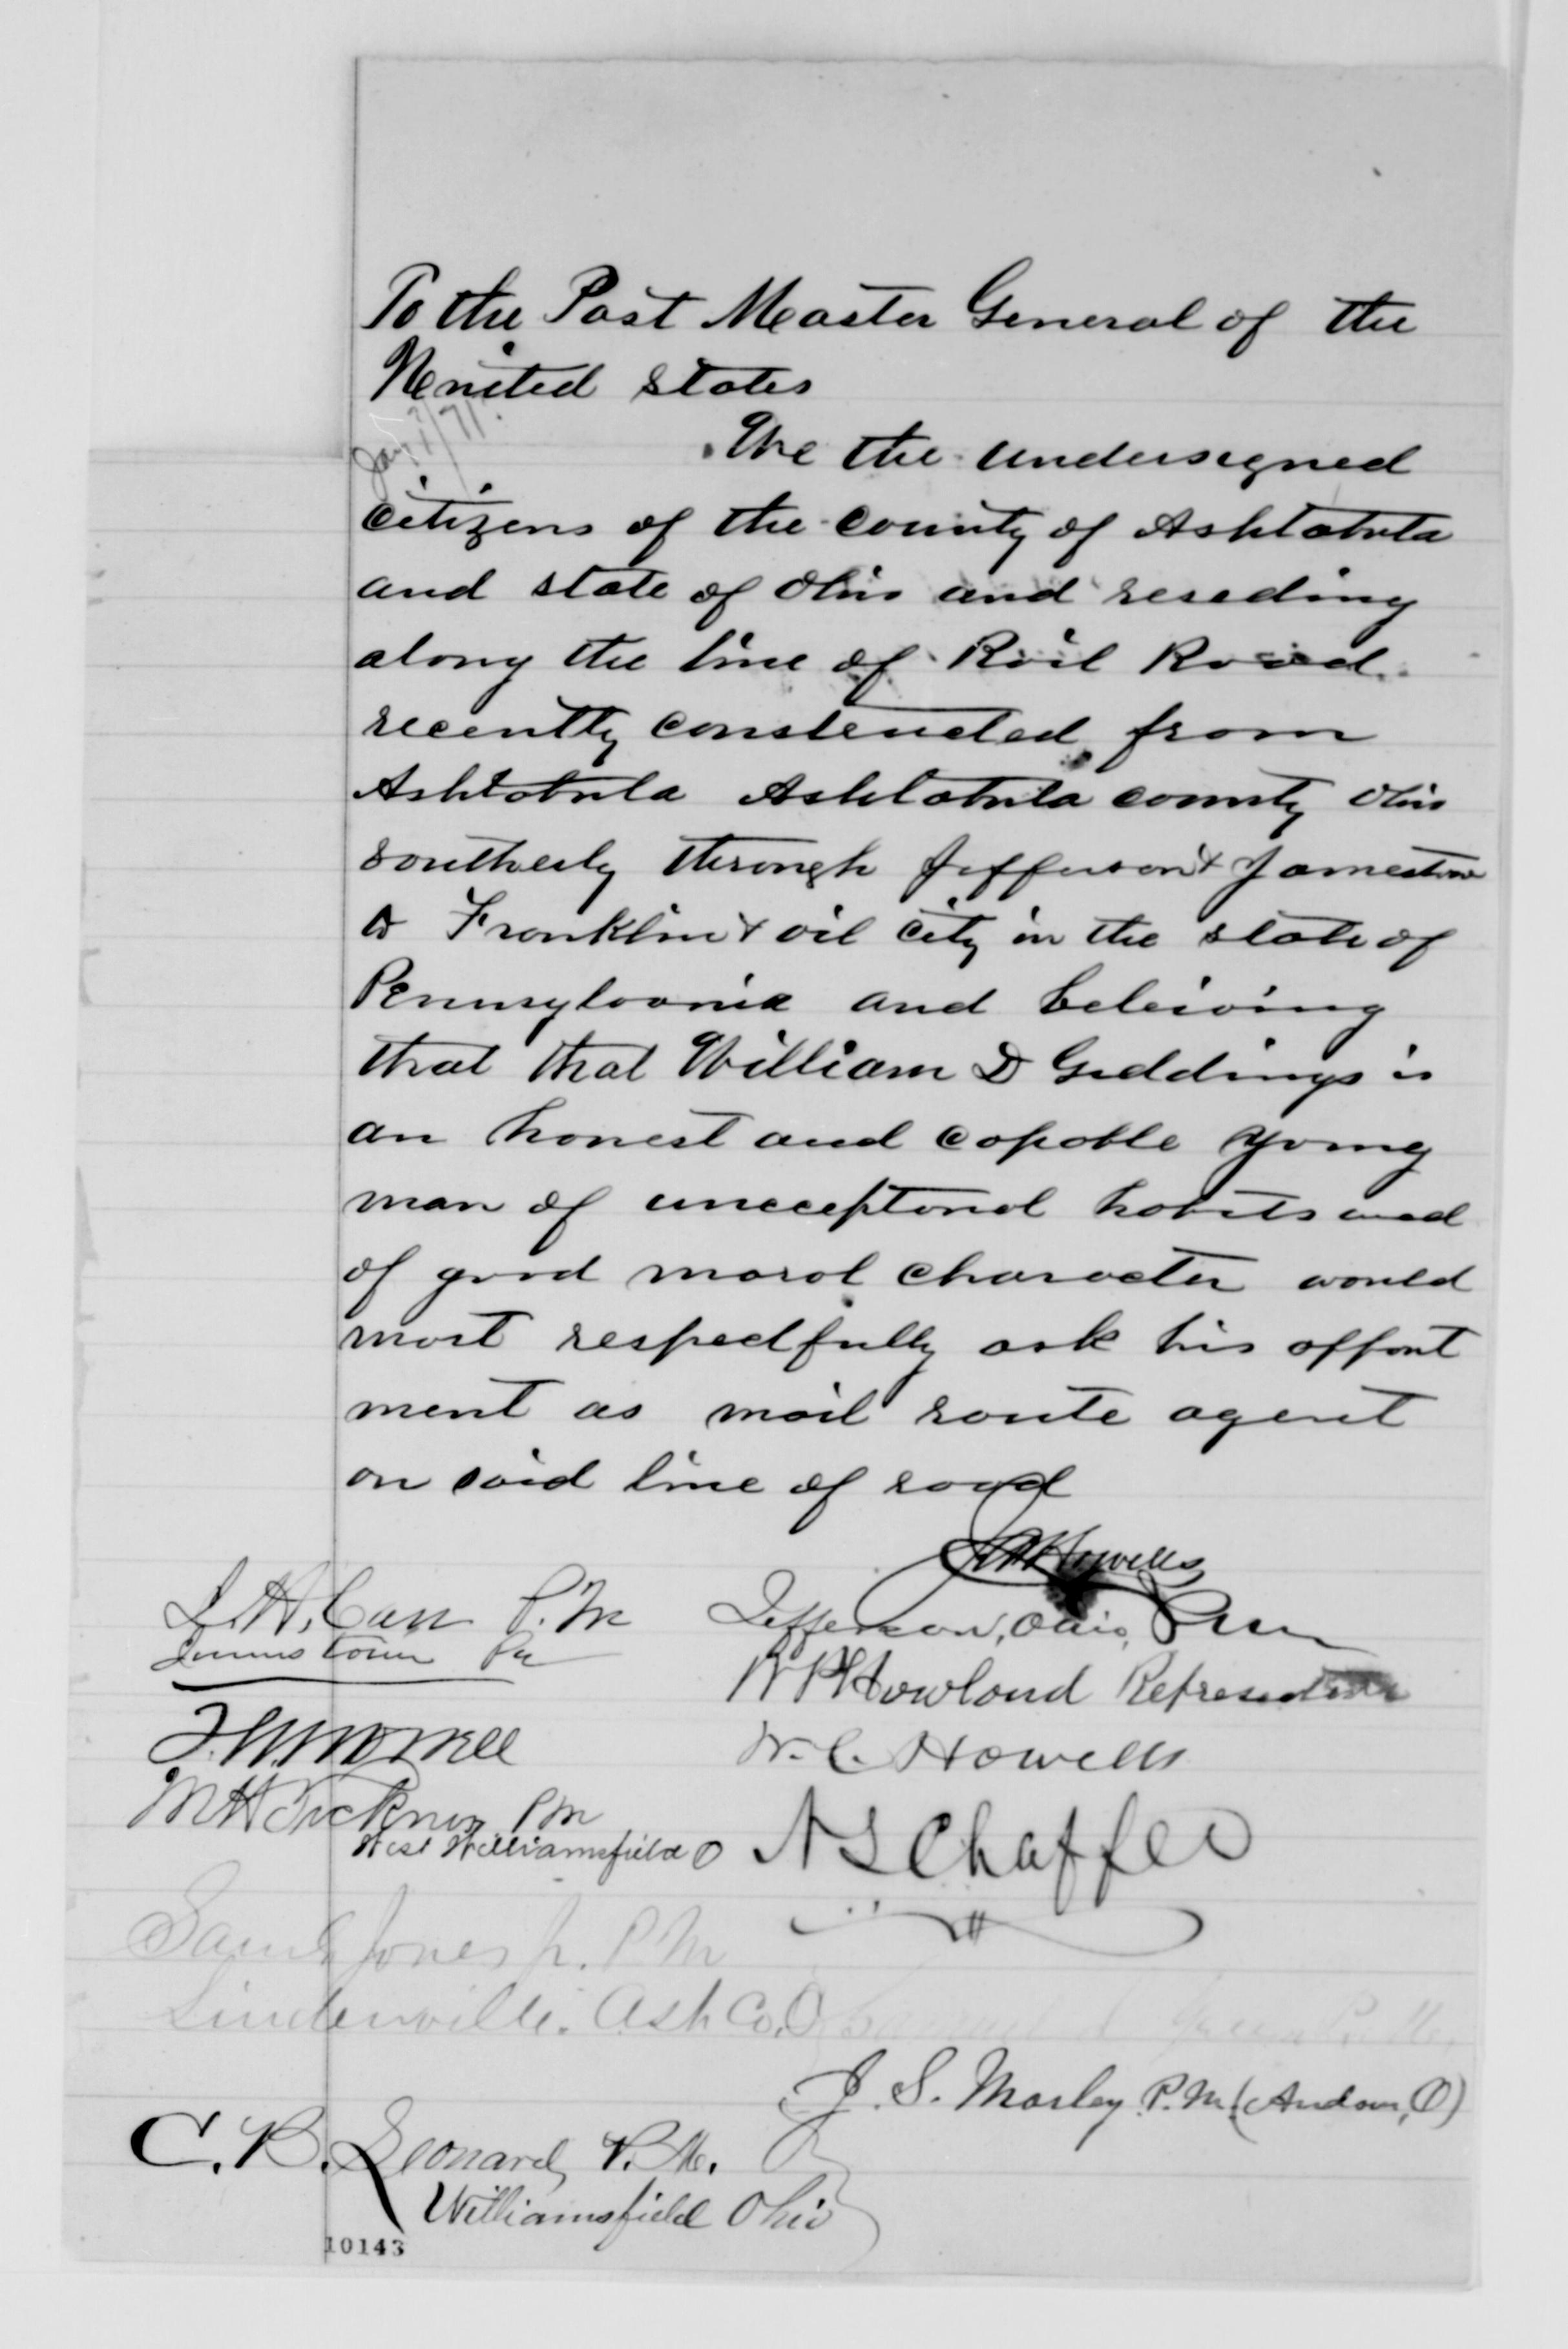 To the Post Measter General of the
Uenited States
Jany 7/71
We the undersigned
citizens of the county of Ashtabula
and state of Ohio and reseding
along the line of Rail Road
recently constructed from
Ashtabula Ashtabula county Ohio
southerly through Jefferson & Jamestown
to Franklin & oil city in the state of
Pennsylvania and beleiving
that that William D Giddings is
an honest and capable young
man of unceeptional habits and
of good moral character would
most respectfully ask his appoint
ment as mail route agent
on said line of road
J A Howells
Jefferson, Ohio, P.M.
W P Howland Representative
W. C. Howells
A S Chaffee
J. H. Carr P. M
Jamestown Pa
M H Ticknor PM
West Williamsfield O
Saml Jones Jr. P. M
Lindenville. Ash Co, O
J. S. Morley P. M. (Andover, O)
C. B. Leonard, P. M.
Williamsfield Ohio
10143